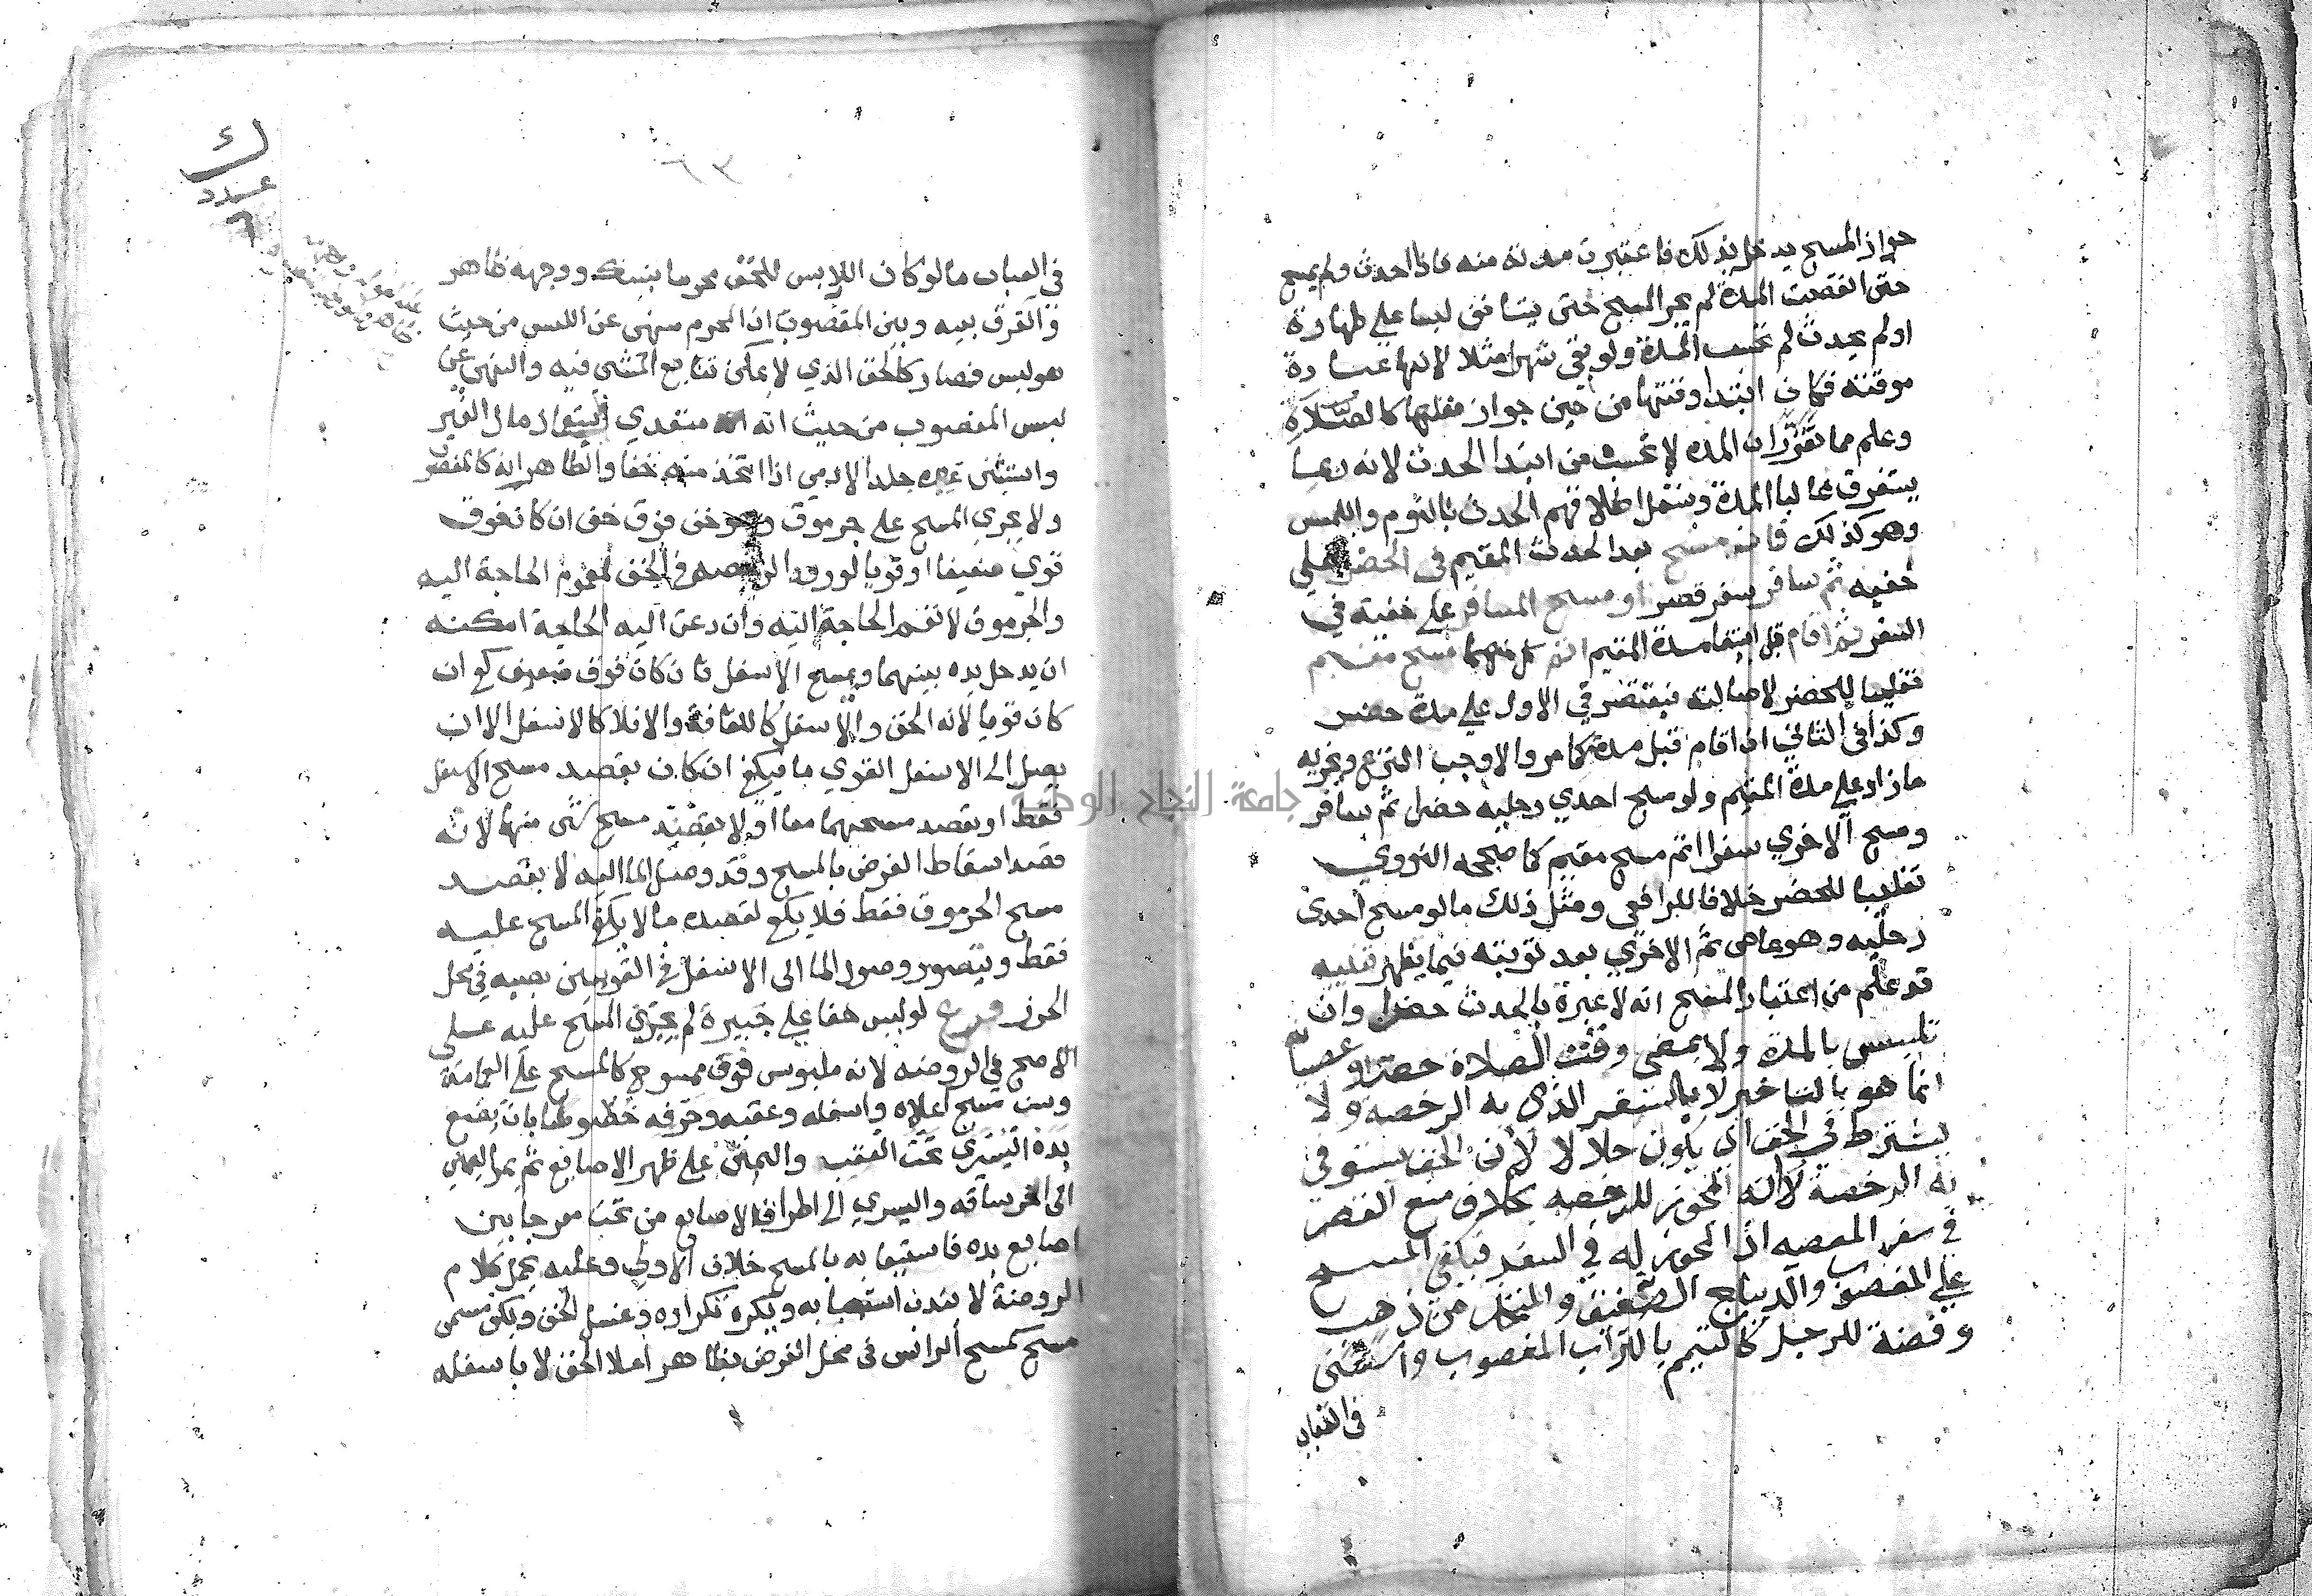 جواز المسح يدخل بذلك فاعتبرت مدته منه فاذا احدث ولم يمسح
حتى انقضت المدة لم يجز المسح حتى يستانف لبسا علي طهارة
اولم يحدث لم تحسب المدة ولو بقي شهرا مثلا لانها عبادة
موقتة فكان ابتدا وقتها من حين جواز فعلها كالصلاة
وعلم مما تقرر ان المدة لا تحسب من ابتدا الحدث لانه ربما
يستغرق غالبا المدة وشمل اطلاقهم الحدث بالنوم واللمس
وهو كذلك فان مسح بعد الحدث المقيم في الحضر علي
خفيه ثم سافر سفر قصر او مسح المسافر علي خفيه في
السفر ثم اقام قبل استيفا مدة المقيم اتم كل منهما مسح مقيم
تغليبا للحضر لاصالته فيقتصر في الاول علي مدة حضر
وكذا في الثاني ان اقام قبل مدته كما مر والا وجب النزع ويجزيه
ما زاد علي مدة المقيم ولو مسح احدي رجليه حضرا ثم سافر
ومسح الاخري سفرا اتم مسح مقيم كما صححه النووي
تغليبا للحضر خلافا للرافعي ومثل ذلك ما لو مسح احدى
رجليه وهو عاص ثم الاخري بعد توبته فيما يظهر تنبيه
قد علم من اعتبار المسح انه لا عبرة بالحدث حضرا وان
تلبس بالمدة ولا بمضي وقت الصلاة حضرا وعصيانه
انما هو بالتاخير لا بالسفر الذي به الرخصة ولا
يشترط في الخف ان يكون حلالا لان الخف يستوفي
به الرخصة لا انه المجوز للرخصة بخلاف منع القصر
في سفر المعصية اذ المجوز له في السفر فيكفي المسح
علي المغصوب والديباج الصفيق والمتخذ من ذهب
وفضة للرجل كالتيمم بالتراب المغصوب واستثنى
في العباب
٦٣
في العباب مالو كان اللابس للخف محرما بنسك ووجهه ظاهر
والفرق بينه وبين المغصوب ان المحرم منهى عن اللبس من حيث
هو لبس فصار كالخف الذي لا يمكن تتابع المشي فيه والنهي عن
لبس المغصوب من حيث انه متعدي باستعمال مال الغير
واستثنى غيره جلد الادمي اذا اتخذ منه خفا والظاهر انه كالمغصوب
ولا يجزي المسح علي جرموق وهو خف فوق خف ان كان فوق
قوي ضعيفا او قويا لورود الرخصة في الخف لعموم الحاجة اليه
والجرموق لا تعم الحاجة اليه وان دعت اليه الحاجة امكنه
ان يدخل يده بينهما ويمسح الاسفل فان كان فوق ضعيف كفى ان
كان قويا لانه الخف والاسفل كاللفافة والا فلا كالاسفل الا ان
يصل الى الاسفل القوي ما فيكفي ان كان بقصد مسح الاسفل
فقط او بقصد مسحهما معا اولا بقصد مسح شي منهما لانه
قصد اسقاط الفرض بالمسح وقد وصل الما اليه لا بقصد
مسح الجرموق فقط فلا يكفي لقصده ما لا يكفي المسح عليه
فقط ويتصور وصول الما الى الاسفل في القويين بصبه في محل
الخرز فرع لو لبس خفا علي جبيرة لم يجزئ المسح عليه على
الاصح في الروضة لانه ملبوس فوق ممسوح كالمسح على العمامة
وسن مسح اعلاه واسفله وعقبه وحرفه خطوطا بان يضع
يده اليسرى تحت العقب واليمنى علي ظهر الاصابع ثم يمر اليمنى
الى اخر ساقه واليسري الى اطراف الاصابع من تحت مفرجا بين
اصابع يده فاستيعابه بالمسح خلاف الاولي وعليه يحمل كلام
الروضة لا يندب استيعابه ويكره تكراره وغسل الخف ويكفي مسمى
مسح كمسح الراس في محل الفرض بظاهر اعلا الخف لا باسفله
جامعة النجاح الوطنية